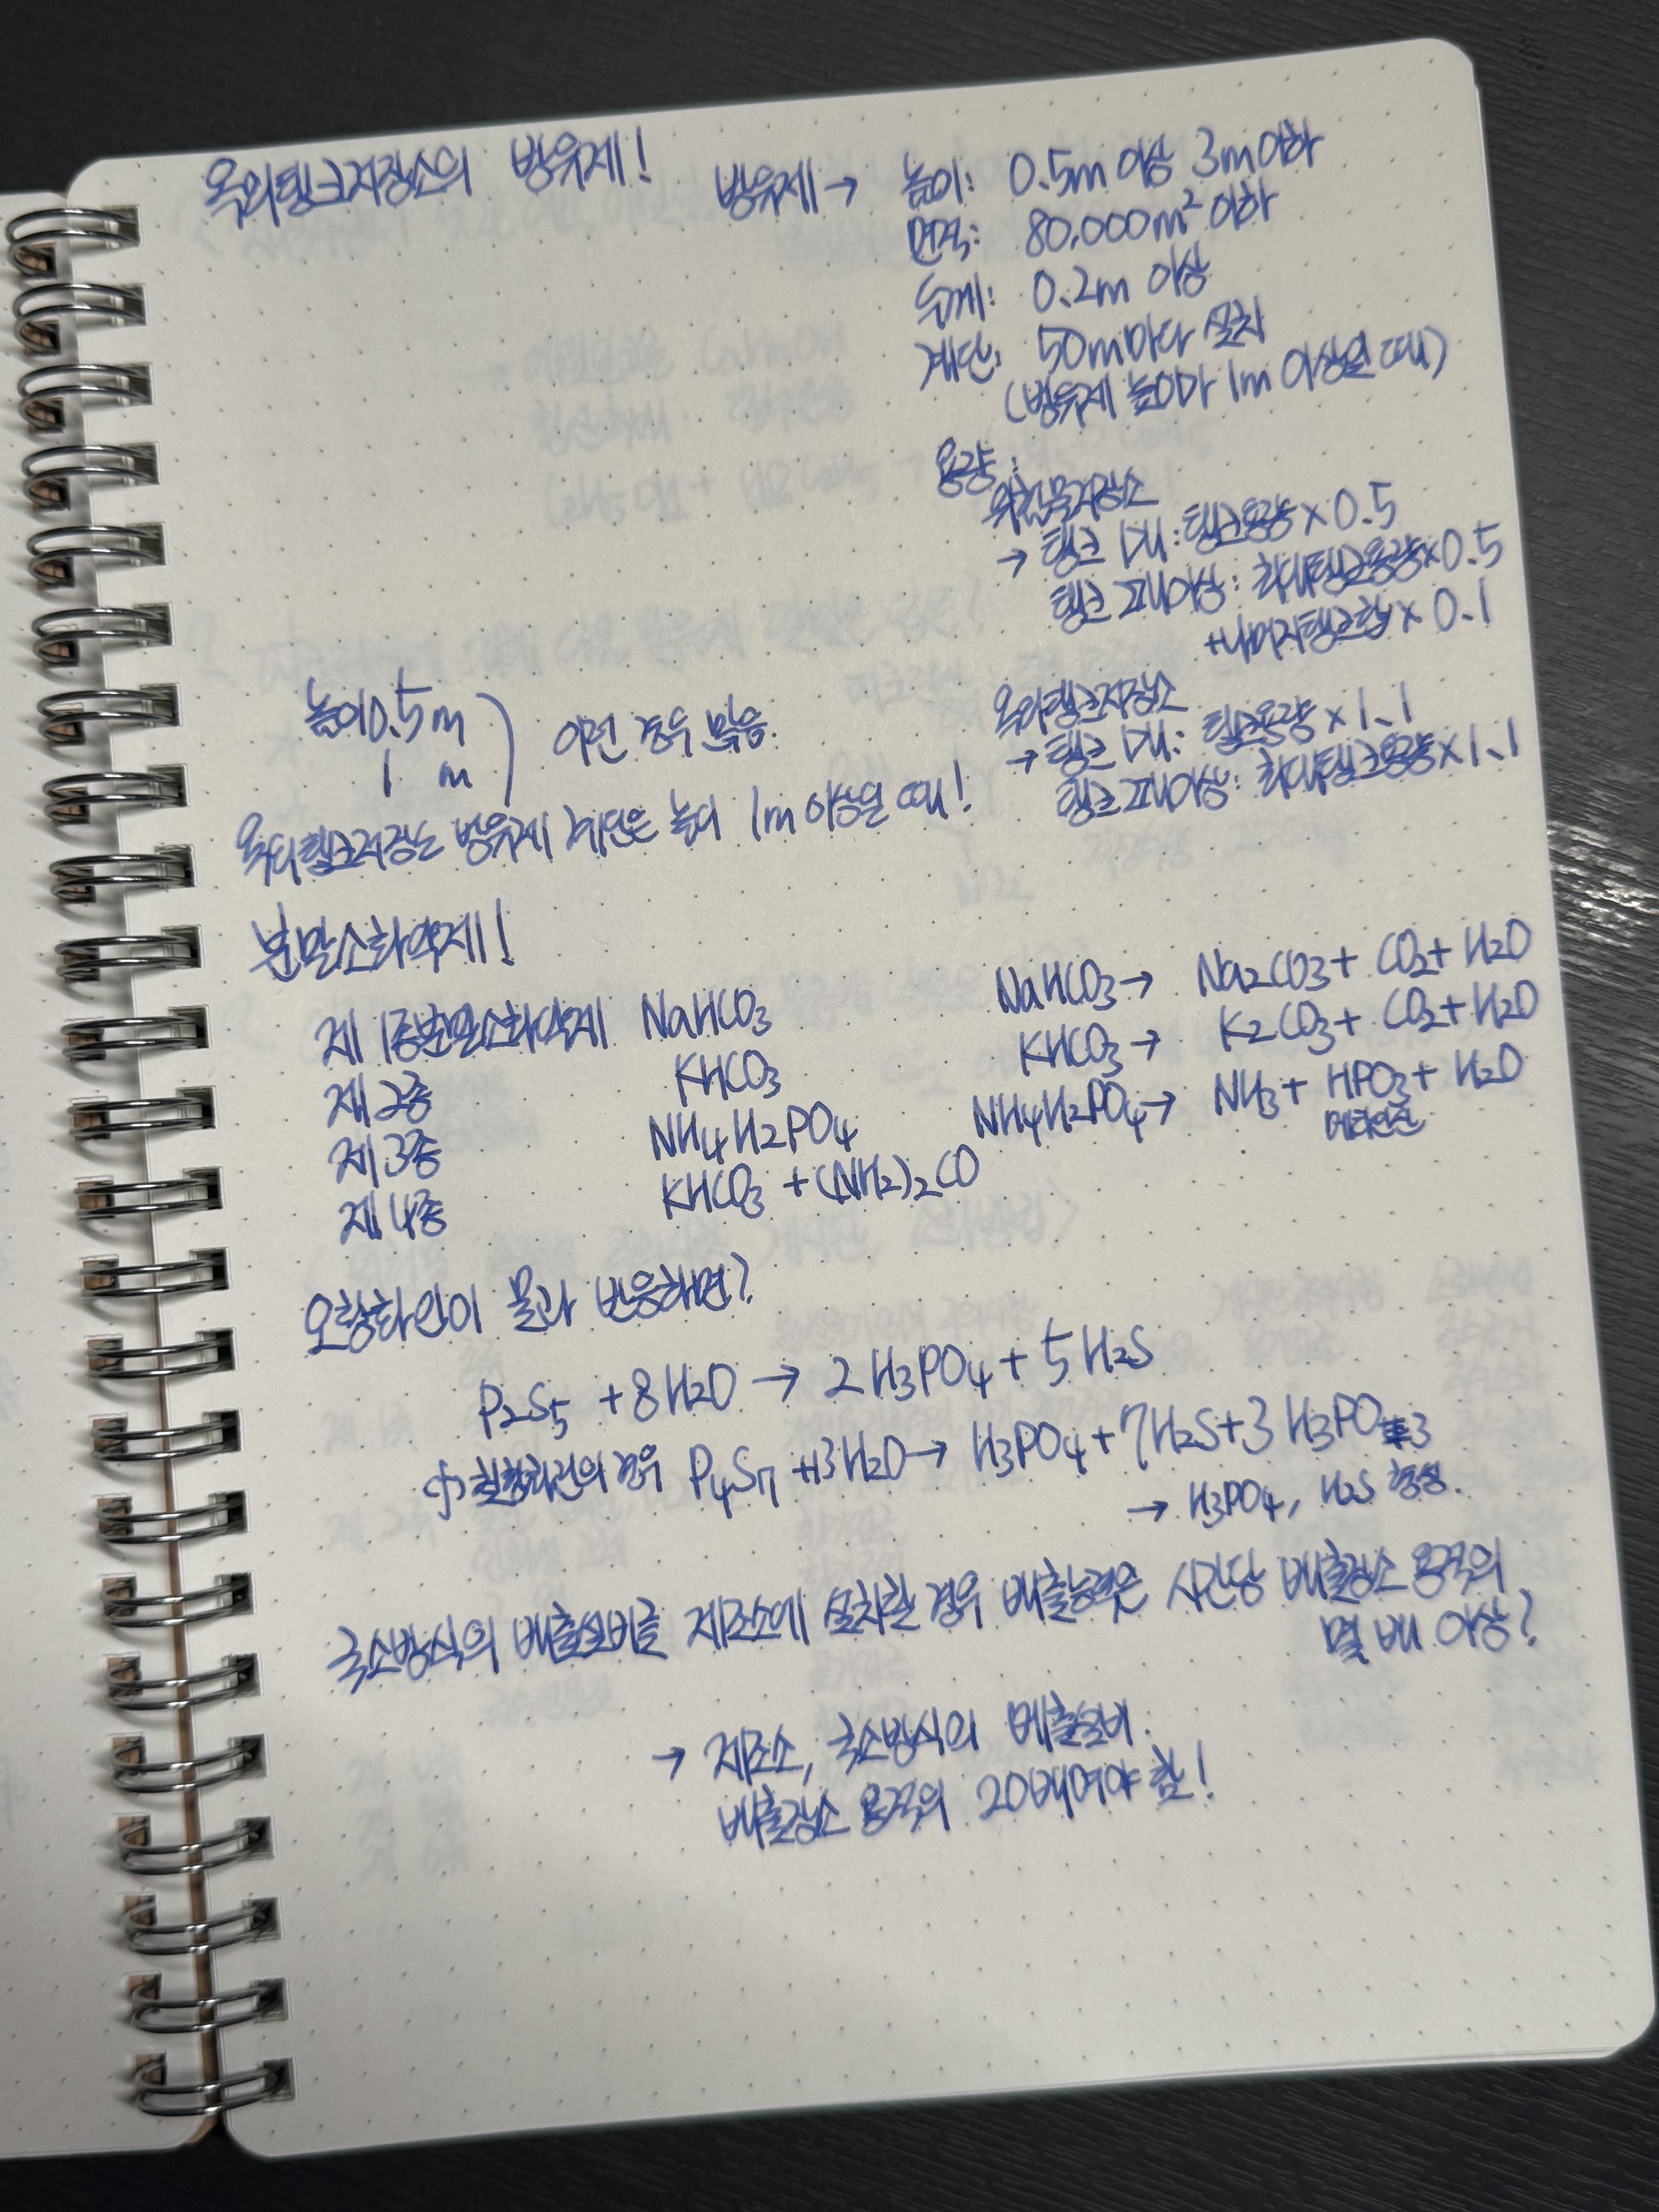 옥외탱크저장소의 방유제!
방유제→ 높이: 0.5m 이상 3m이하
면적: 80,000m² 이하
두께: 0.2m 이상
계단: 50m마다 설치
(방유제 높이마 1m 이상일 때)
용량:
위험물저장소
→ 탱크 1개: 탱크용량×0.5
탱크 2개이상: 최대탱크용량×0.5
+나머지탱크합×0.1
옥외탱크저장소
→ 탱크 1개: 탱크용량×1.1
탱크 2개이상: 최대탱크용량×1.1
높이0.5m
1 m ) 이런 경우 묶음.
옥외탱크저장소 방유제 계단은 높이 1m 이상일 때!
분말소화약제!
제 1종분말소화약제 NaHCO3 NaHCO3→ Na2CO3+ CO2+ H2O
제 2종 KHCO3 KHCO3→ K2CO3+ CO2+H2O
제 3종 NH4H2PO4 NH4H2PO4→ NH3+ HPO3+ H2O
메타인산
제 4종 KHCO3 +(NH2)2CO
오황화인이 물과 반응하면?
P2S5 +8H2O → 2H3PO4+5H2S
칠황화인의 경우 P4S7 +13H2O→ H3PO4+7H2S+3H3PO3
→ H3PO4, H2S 형성.
국소방식의 배출설비를 제조소에 설치할 경우 배출능력은 시간당 배출장소 용적의
몇 배 이상?
→ 제조소, 국소방식의 배출설비.
배출장소 용적의 20배여야 함!